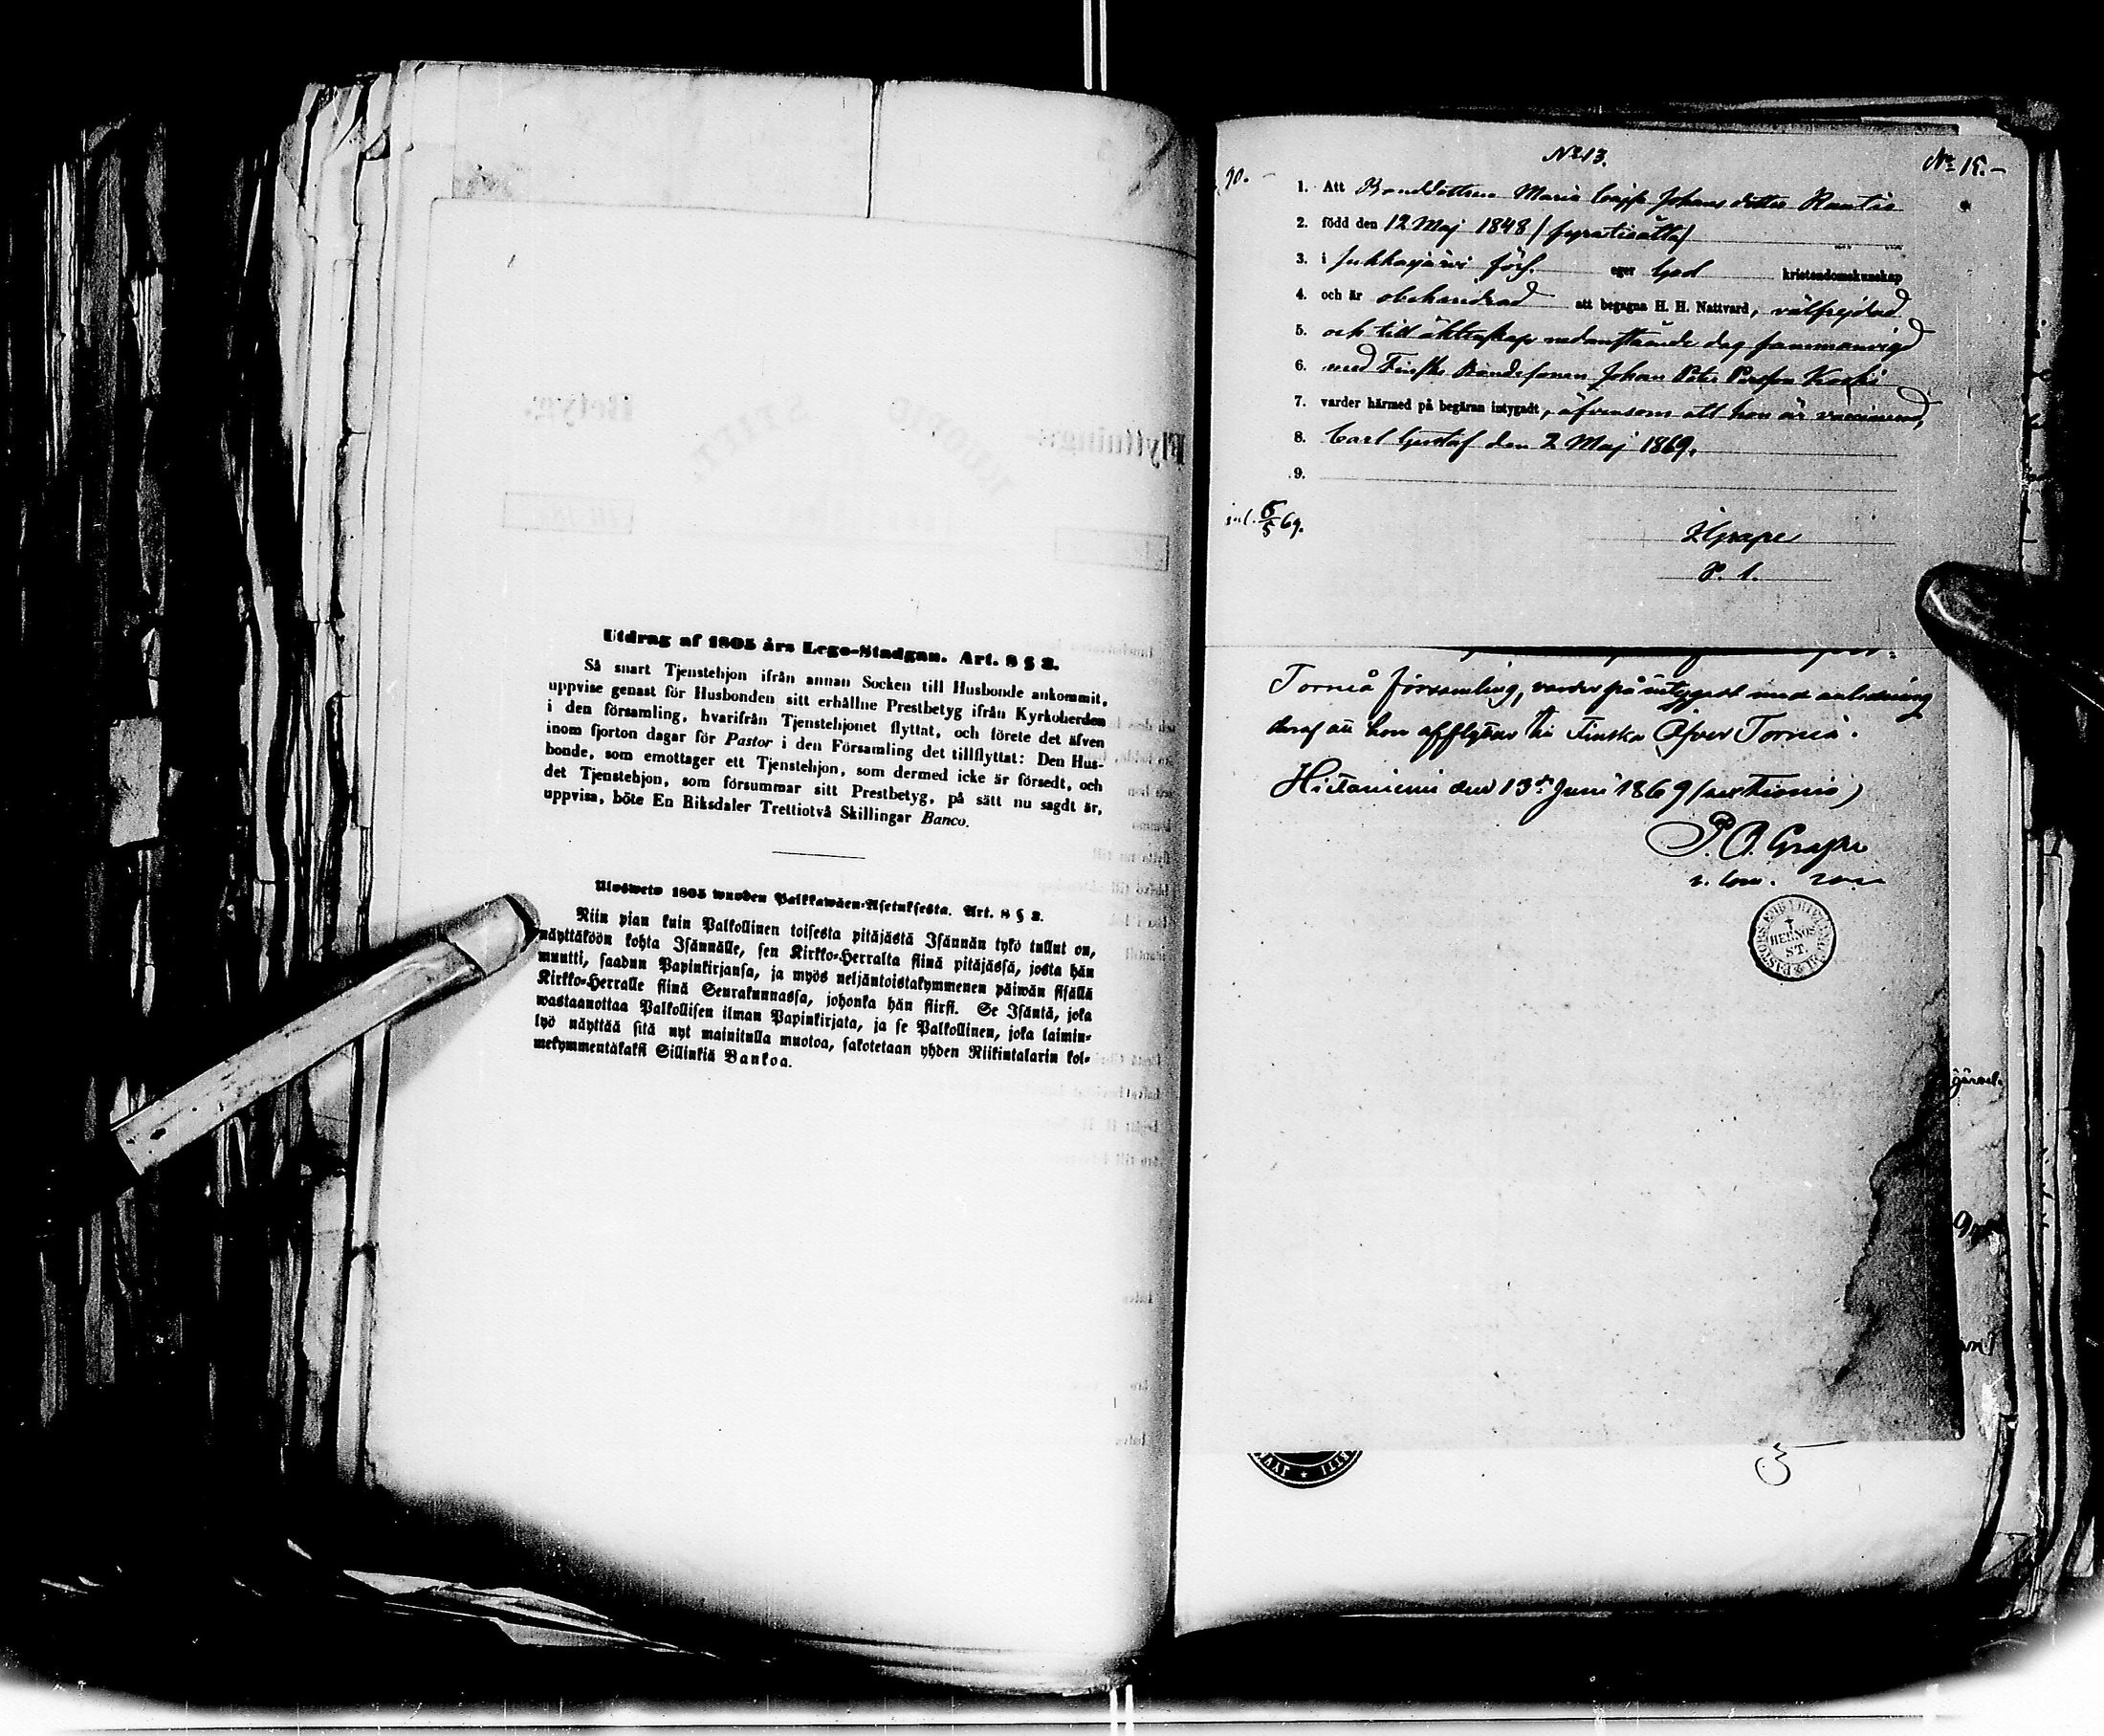 Utdrag af 1805 års Lego-Stadgan. Art. 8 § 3.
Så snart Tjenstehjon ifrån annan Socken till Husbonde ankommit,
uppvise genast för Husbonden sitt erhållne Prestbetyg ifrån Kyrkoherden
i den församling, hvarifrån Tjenstehjonet flyttat, och förete det äfven
inom fjorton dagar för Pastor i den Församling det tillflyttat: Den Hus-
bonde, som emottager ett Tjenstehjon, som dermed icke är försedt, och
det Tjenstehjon, som försummar sitt Prestbetyg, på sätt nu sagdt är,
uppvisa, böte En Riksdaler Trettiotvå Skillingar Banco.
Ulosweto 1805 wuoden Palkkawäen-Asetuksesta. Art. 8 § 3.
Niin pian kuin Palkollinen toisesta pitäjästä Isännän tykö tullut on,
näyttäköön kohta Isännälle, sen Kirkko-Herralta siinä pitäjässä, josta hän
muutti, saadun Papinkirjansa, ja myös neljäntoistakymmenen päiwän sisällä
Kirkko-Herralle siinä Seurakunnassa, johonka hän siirsi. Se Isäntä, joka
wastaanottaa Palkollisen ilman Papinkirjata, ja se Palkollinen, joka laimin-
lyö näyttää sitä nyt mainitulla muotoa, sakotetaan yhden Riikintalarin kol-
mekymmentäkaksi Sillinkiä Bankoa.
No 13.
No 15.-
90.
1. Att Bonddottren Maria Cajsa Johansdotter Rautio
2. född den 12 Maj 1848 / fyratioåtta/
3. i Jukkasjärvi förs. eger God kristendomskunskap
4. och är obehindrad att begagna H. H. Nattvard, välfrejdad
5. och till äktenskap nedanstående dag sammanvigd
6. med Finske Bondesonen Johan Peter Persson Koski
7. varder härmed på begäran intygadt, äfvensom att hon är vaccinerad,
8. Carl Gustaf den 2 Maj 1869.
9.
inl. 6/5 69.
Grape
Torneå församling, varder på intygadt med anledning
deraf att hon afflyttar till Finska Öfver Torneå.
Hietaniemi den 13de Juni 1869 (sextionio)
P. O. Grape
HERNÖS
ST.